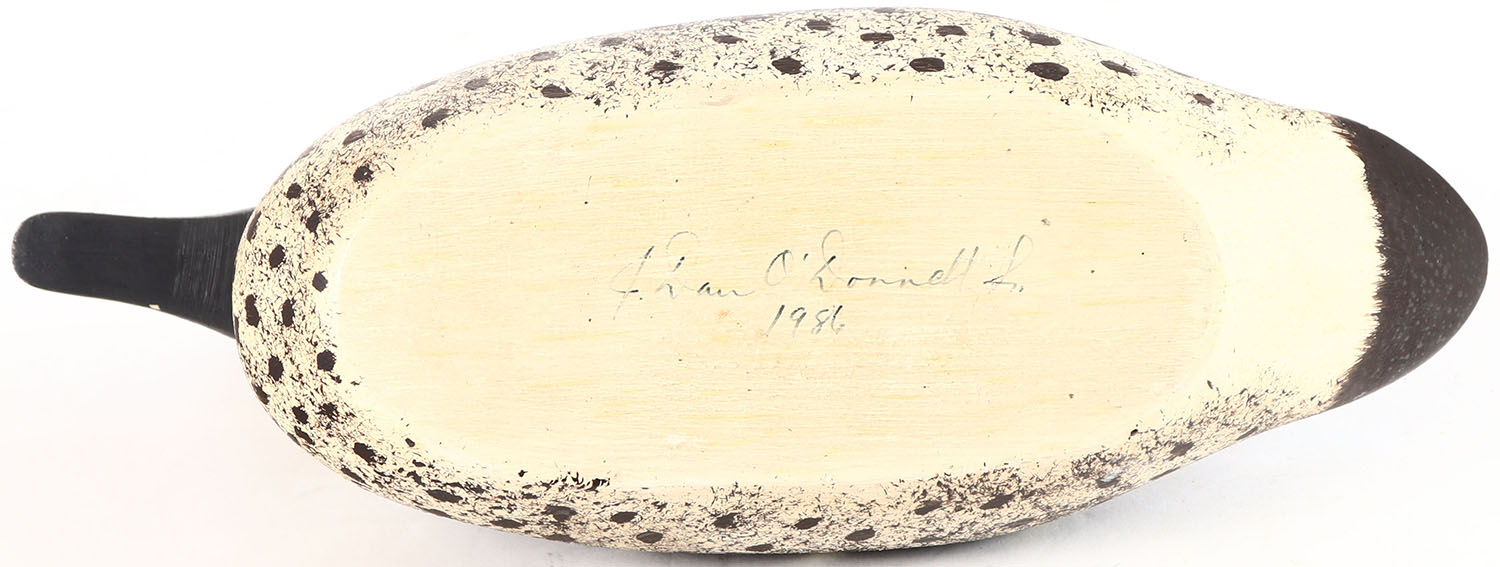 J. Dan O'Donnell Sr.
1986